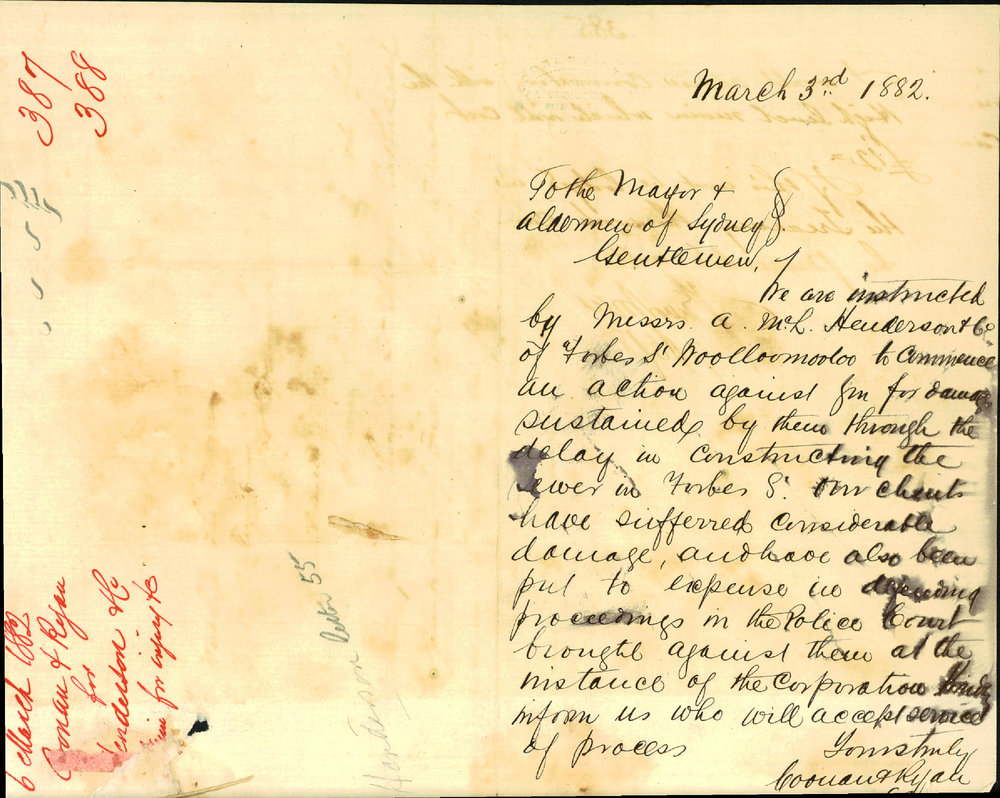 March 3rd 1882.
To the Mayor &
Aldermen of Sydney
Gentlemen,
We are instructed
by Messrs. A. McL. Henderson & Co
of Forbes St Woolloomooloo to Commence
an action against you for damage
sustained by them through the
delay in constructing the
sewer in Forbes St. Our clients
have sufferred considerable
damage, and have also been
put to expense in defending
proceedings in the Police Court
brought against them at the
instance of the Corporation Kindly
inform us who will accept service
of process
Yours truly
Coonan & Ryan
387
388
6 March 1882
Coonan & Ryan
for
Henderson & Co
for injury &c
Henderson letter 55